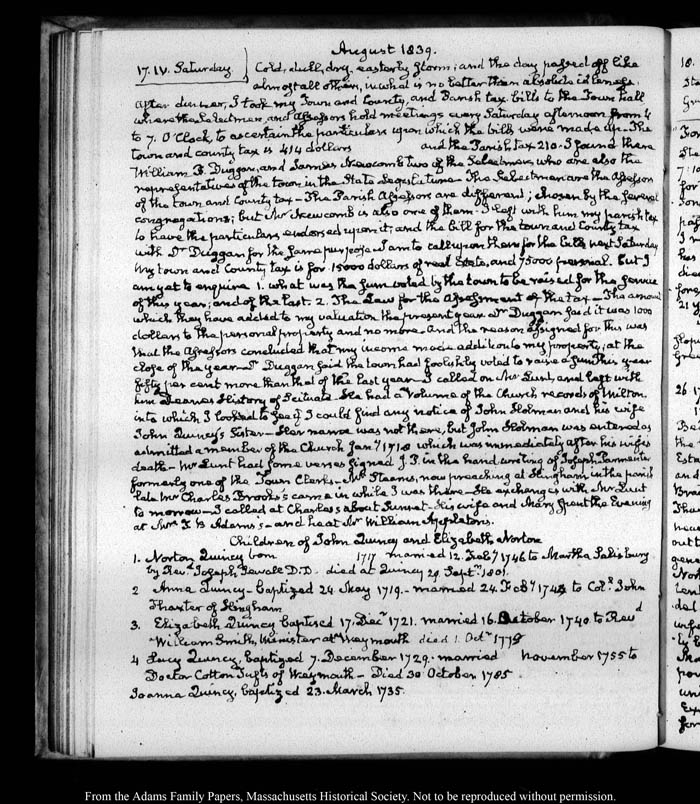 August 1839.
17. IV. Saturday
Cold, dull, dry, easterly storm; and the day passed off like
almost all others, in what is no better than absolute idleness.
After dinner, I took my Town and County, and Parish tax bills to the Town Hall
where the Selectmen, and Assessors hold meetings every Saturday afternoon from 4
to 7. O'Clock, to ascertain the particulars upon which the bills were made up. The
town and county tax is 414 dollars and the Parish Tax 210. I found there
William B. Duggan, and James Newcomb two of the Selectmen, who are also the
representatives of the town in the State Legislature. The Selectmen are the Assessors
of the town and County tax - The Parish Assessors are different; chosen by the several
congregations; but Mr Newcomb is also one of them. I left with him my parish tax
to have the particulars endorsed upon it, and the bill for the town and County tax
with Dr Duggan for the same purpose. I am to call upon them for the bills next Saturday
My town and County tax is for 15000 dollars of real Estate, and 75000 personal. But I
am yet to enquire 1. what was the sum voted by the town to be raised for the service
of this year; and of the last. 2. The Law for the assessment of the tax - The amount
which they have added to my valuation the present year Dr Duggan said it was 1000
dollars to the personal property and no more. And the reason assigned for this was
that the Assessors concluded that my income made addition to my property, at the
close of the year - Dr Duggan said the town had foolishly voted to raise a sum this year
fifty per cent more than that of the last year - I called on Mr Lunt, and left with
him Deane's History of Scituate. He had a volume of the Church records of Milton
into which I looked to see if I could find any notice of John Holman and his wife
John Quincy's Sister - Her name was not there, but John Holman was entered as
admitted a member of the Church Jany 1718 which was immediately after his wife's
death - Mr Lunt had some verses signed J. P. in the hand writing of Joseph Parmenter
formerly one of the Town Clerks - Mr Stearns, now preaching at Hingham in the parish
late Mr Charles Brooks's came in while I was there - He exchanges with Mr Lunt
to morrow - I called at Charles's about Sunset - His wife and Mary spent the Evening
at Mrs T. B. Adams's - and he at Mr William Appleton's.
Children of John Quincy and Elizabeth Norton
1. Norton Quincy born 1717 married 12. Feby 1746 to Martha Salisbury
by Revd Joseph Sewall D.D. died at Quincy 29. Septr 1801.
2 Anna Quincy - baptized 24. May 1719. - married 24. Feby to Col. John
Thaxter of Hingham
3. Elizabeth Quincy baptised 17. Decr 1721. married 16. October 1740 to Revd
William Smith, Minister at Weymouth died 1. Octr
4 Lucy Quincy, baptized 7. December 1729. married November 1755 to
Doctor Cotton Tufts of Weymouth - Died 30 October 1785
Joanna Quincy, baptized 23. March 1735.
From the Adams Family Papers, Massachusetts Historical Society. Not to be reproduced without permission.